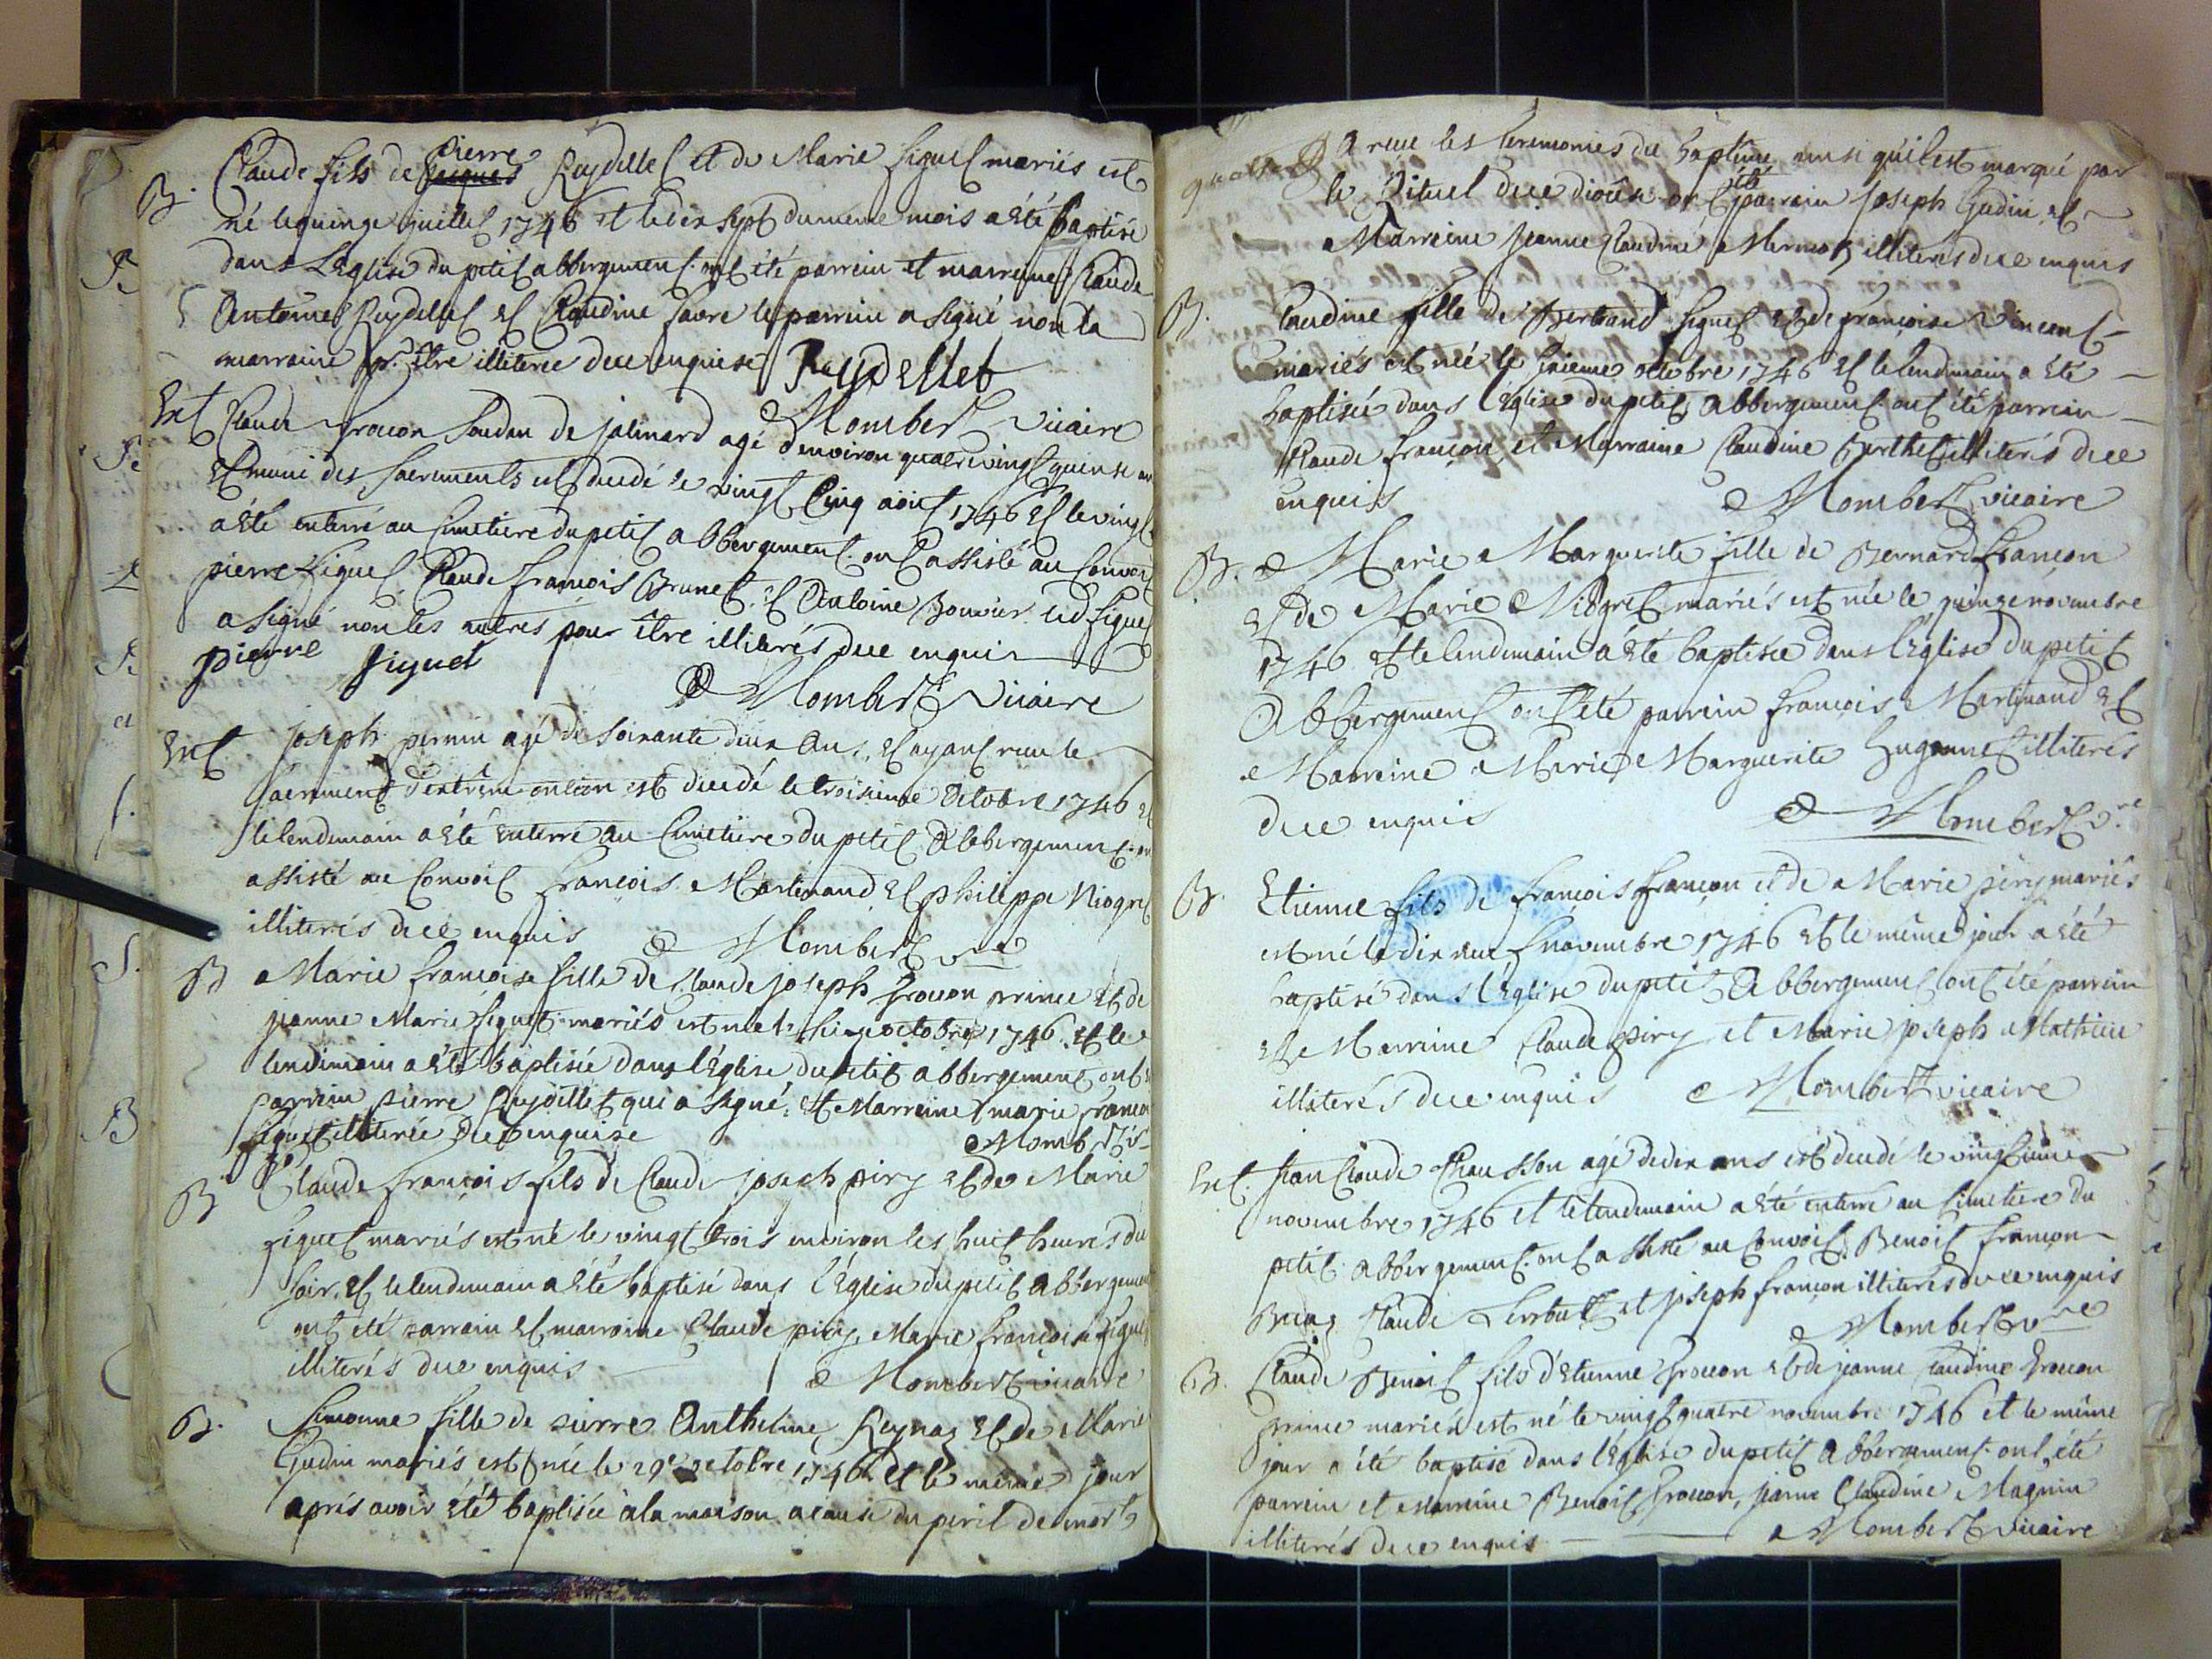 B. Claude fils de Jacques pierre Reydellet et de Marie Figuet mariés est
né le quinze juillet 1746 et le dix sept du meme mois a été baptisé
dans L'Eglise du petit abbergement. ont été parrein et marreine Claude
Antoine Reydellet et Claudine favre le parrein a signé non la
marraine pr. être illiterée de ce enquise Reydellet
Mombert vicaire
Ent Claude Frocon Soudan de jalinard agé d'environ quatre vingt quinse ans
et muni des sacrements est decedé le vingt cinq août 1746 et le vingt
a été enterré au cimetiere du petit abbergement ont assisté au convoit
pierre Figuet, Claude françois Brunet, et Antoine Bouvier. led Figuet
a signé non les autres pour être illiterés de ce enquis
pierre figuet
Mombert vicaire
Ent Joseph perrin agé de soixante deux ans, et ayant recu le
sacrement d'extrême onction est decedé le troisieme octobre 1746 et
le lendemain a été enterré au cimetiere du petit Abbergement. ont
assisté au convoit françois Martinand, et philippe Niogret
illiterés de ce enquis Mombert vre
B Marie françoise fille de Claude joseph frocon prince et de
jeanne Marie figuet mariés est née le seize octobre 1746 et le
lendemain a été baptisée dans l'Eglise du petit abbergement, ont été
parrein pierre Reydellet qui a signé, et Marreine marie françoise
figuet illiterée de ce enquise Mombert vre
B Claude françois fils de Claude joseph piry et de Marie
figuet mariés est né le vingt trois environ les huit heures du
soir, et le lendemain a été baptisé dans l'Eglise du petit abbergement
ont été parrain et marraine Claude piry, Marie françoise figuet
illiterés de ce enquis Mombert vicaire
B. Simonne fille de pierre Anthelme Reynaz et de Marie
Gudin mariés est née le 29e octobre 1746 et le même jour
aprés avoir été baptisée a la maison a cause du peril de mort
a reçue les ceremonies du baptême ainsi qu'il est marqué par
le Rituel du diocèse ont été parrain joseph Gudin, et
Marreine jeanne Claudine Mermet, illiterés de ce enquis
B. Claudine fille de Bertrand figuet et de françoise vincent
mariés est née le seizieme octobre 1746 et le lendemain a été
baptisée dans l'église du petit abbergement ont été parrein
Claude françon, et Marraine Claudine Berthet illiterés de ce
enquis Mombert vicaire
B. Marie Marguerite fille de Bernard françon
et de Marie Niogret mariés est née le quinze novembre
1746 et le lendemain a été baptisée dans l'Eglise du petit
Abbergement ont été parrein françois Martinand et
Marreine Marie Marguerite Hugonnet illiterés
de ce enquis Mombert vre
B. Etienne fils de françois françon et de Marie piry mariés
est né le dix neuf novembre 1746 et le même jour a été
baptisé dans l'Eglise du petit Abbergement ont été parrein
et Marreine Claude piry et Marie joseph Mathieu
illiterés de ce enquis Mombert vicaire
Ent. Jean Claude Chausson agé de dix ans est decedé le vingtième
novembre 1746 et le lendemain a été enterré au cimetiere du
petit abbergement. ont assisté au convoit Benoit françon
Claude et joseph françon illiterés de ce enquis
Mombert vre
B. Claude Benoit fils d'Etienne frocon et de jeanne Claudine frocon
prince mariés est né le vingt quatre novembre 1746 et le même
jour a été baptisé dans l'Eglise du petit Abbergement. ont été
parrein et Marreine Benoit frocon, jeanne Claudine Magnin
illiterés de ce enquis Mombert vicaire